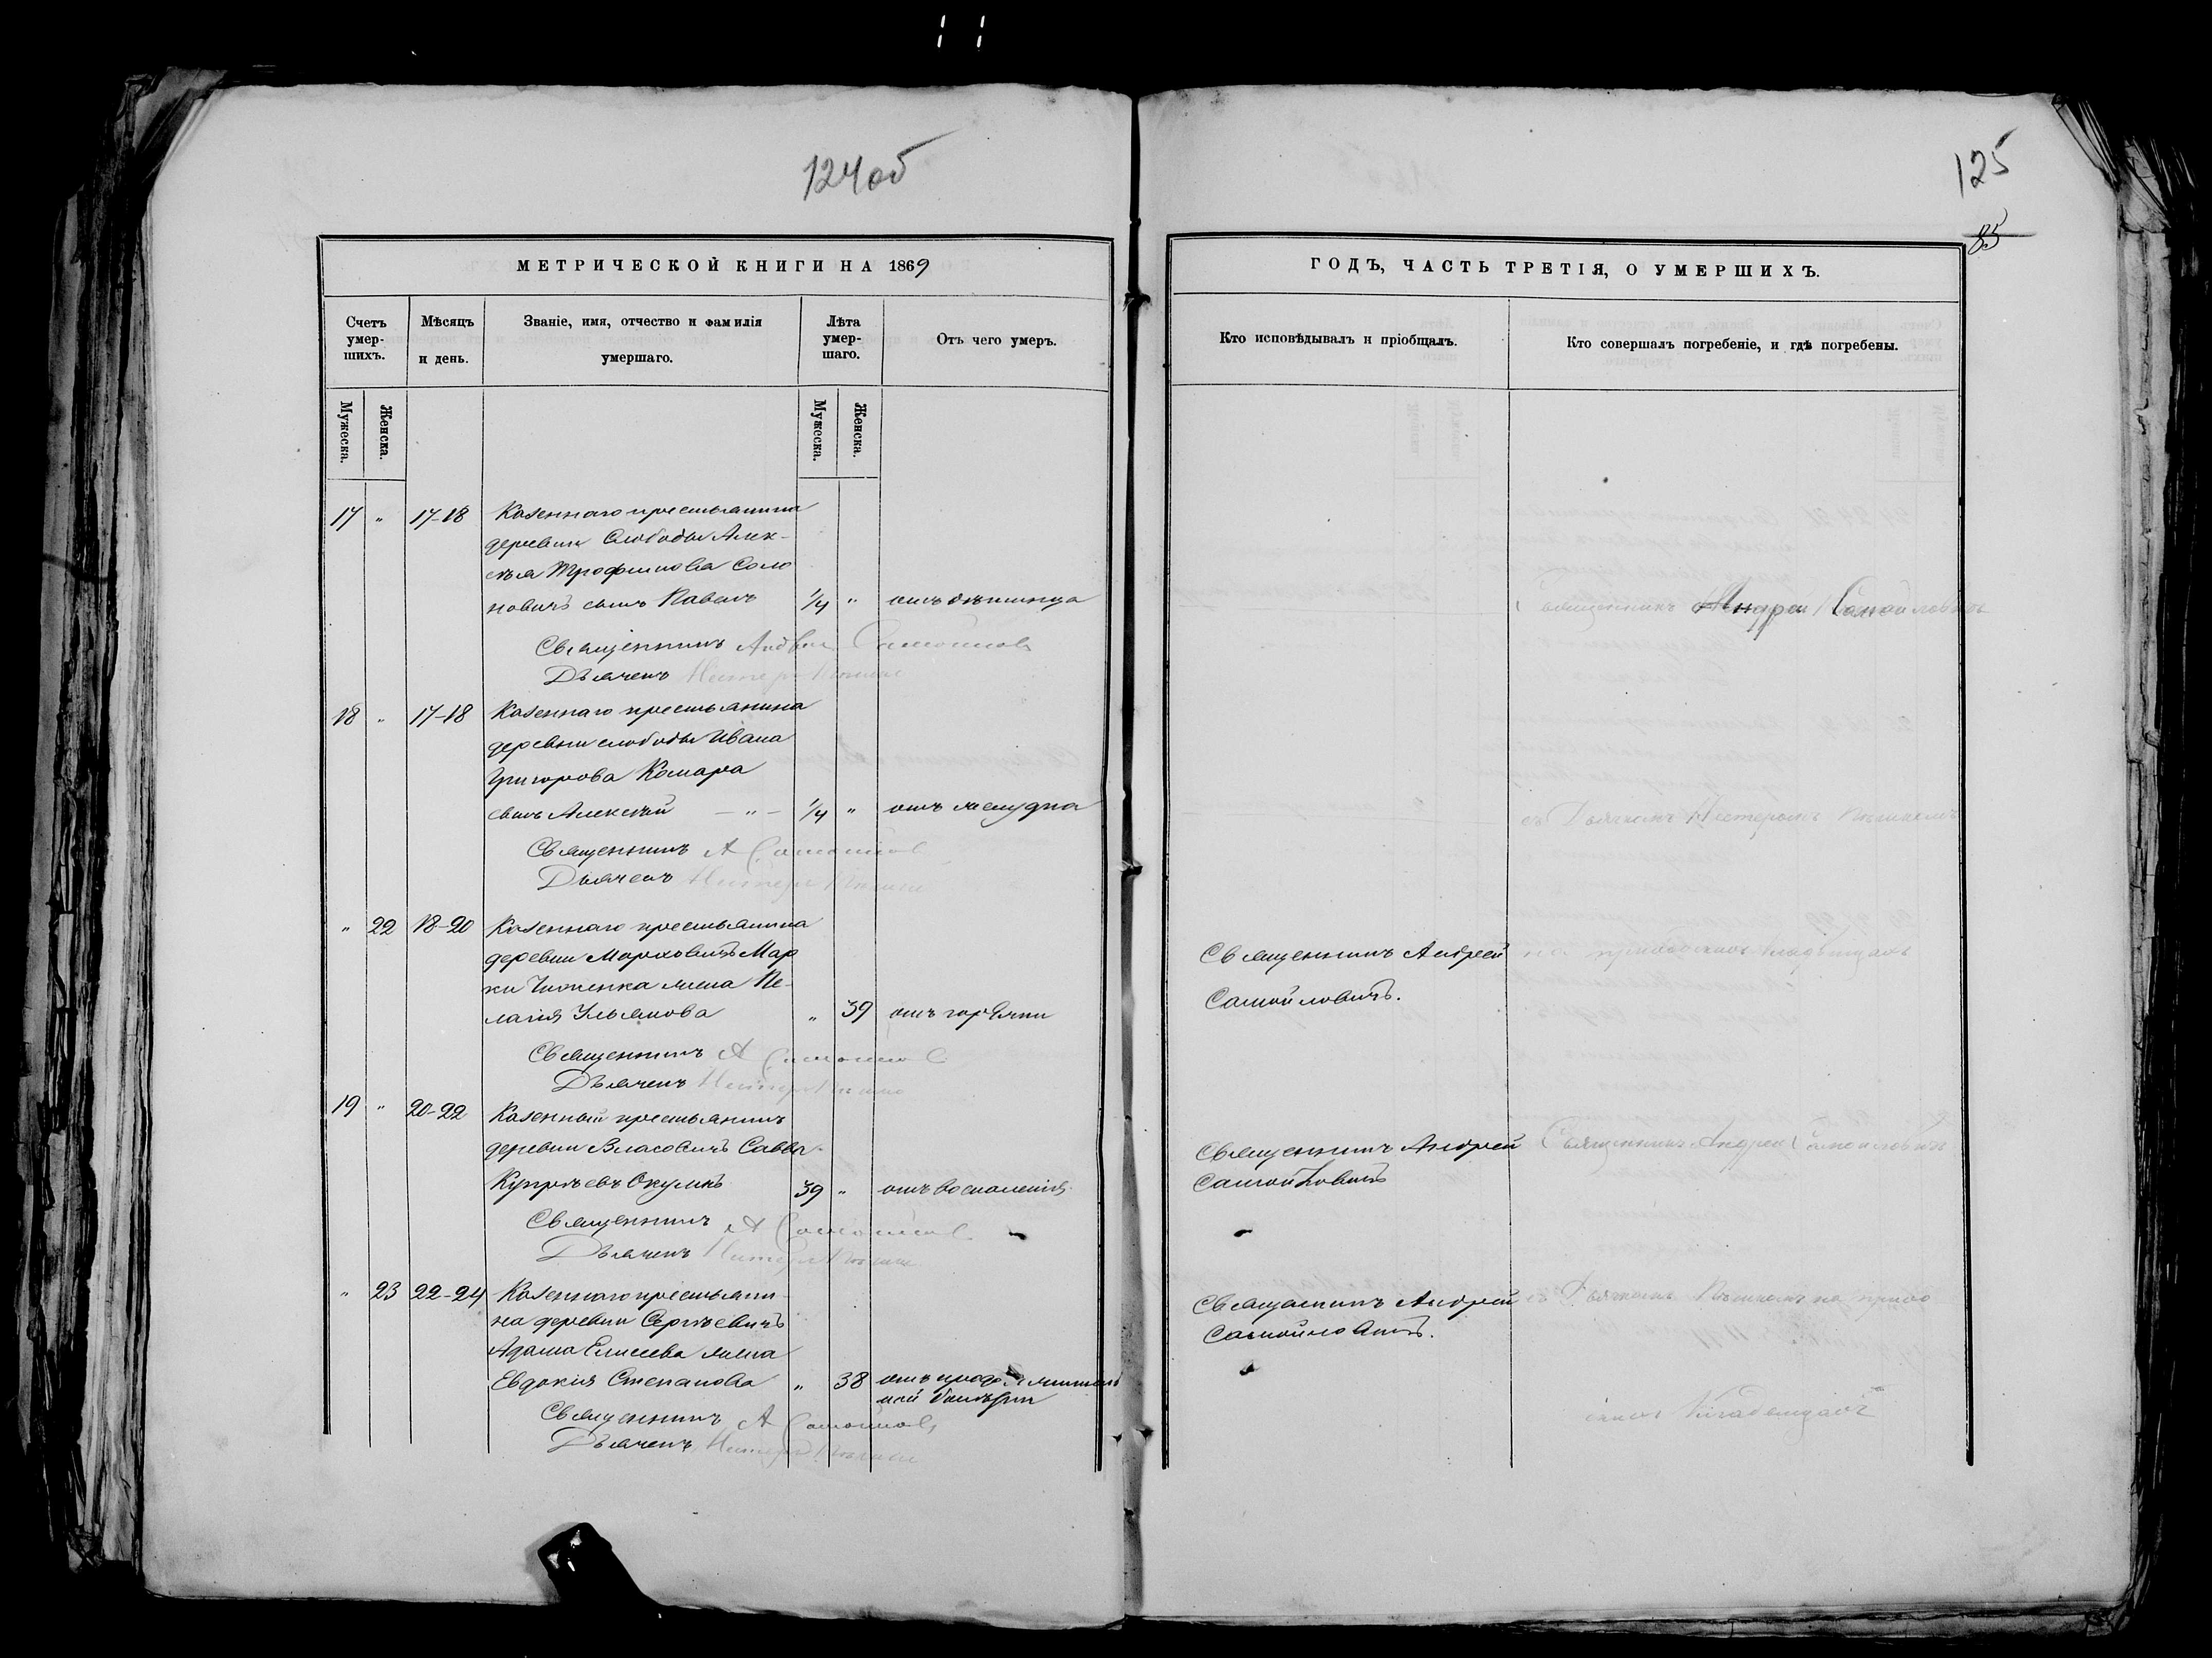 124об
125
85
МЕТРИЧЕСКОЙ КНИГИ НА 1869
ГОДЪ, ЧАСТЬ ТРЕТІЯ, О УМЕРШИХЪ.
Счетъ умер-шихъ.
Мѣсяцъ и день.
Званіе, имя, отчество и фамилія умершаго.
Лѣта умер-шаго.
Отъ чего умеръ.
Кто исповѣдывалъ и пріобщалъ.
Кто совершалъ погребеніе, и гдѣ погребены.
Мужеска.
Женска.
Мужеска.
Женска.
17 " 17-18 Казеннаго крестьянина
деревни Слободы Алек-
сѣя Трофимова Соло
новичъ сынъ Павелъ 1/4 "
Священникъ Андрей Самойлов
Дьячекъ Нестеръ
Священникъ Андрей Самойловичъ
18 " 17-18 Казеннаго крестьянина
деревни слободы Ивана
Григорова Комара
сынъ Алексѣй — " — 1/4 " отъ желудка
Священникъ А Самойлов
Дьячекъ Нестеръ
съ Дьячкомъ Нестеромъ
" 22 18-20 Казеннаго крестьянина
деревни Марковичъ Мар
ки жена Пе-
лагія Ульянова " 39 отъ горячки
Священникъ А Самойлов
Дьячекъ Нестеръ
Священникъ Андрей
Самойловичъ.
на приходскомъ кладбищахъ
19 " 20-22 Казенный крестьянинъ
деревни Власовичъ Савва
Купрѣевъ Окуликъ 39 " отъ воспаленія
Священникъ А Самойлов
Дьячекъ Нестеръ
Священникъ Андрей
Самойловичъ
Священникъ Андрей Самойловичъ
" 23 22-24 Казеннаго крестьяни-
на деревни Сергѣевичъ
Адама Елисеева жена
Евдокія Степанова " 38 отъ продолжитель
ной болѣзни
Священникъ А Самойлов
Дьячекъ Нестеръ
Священникъ Андрей
Самойловичъ.
съ Дьячкомъ на прихо
кладбищахъ